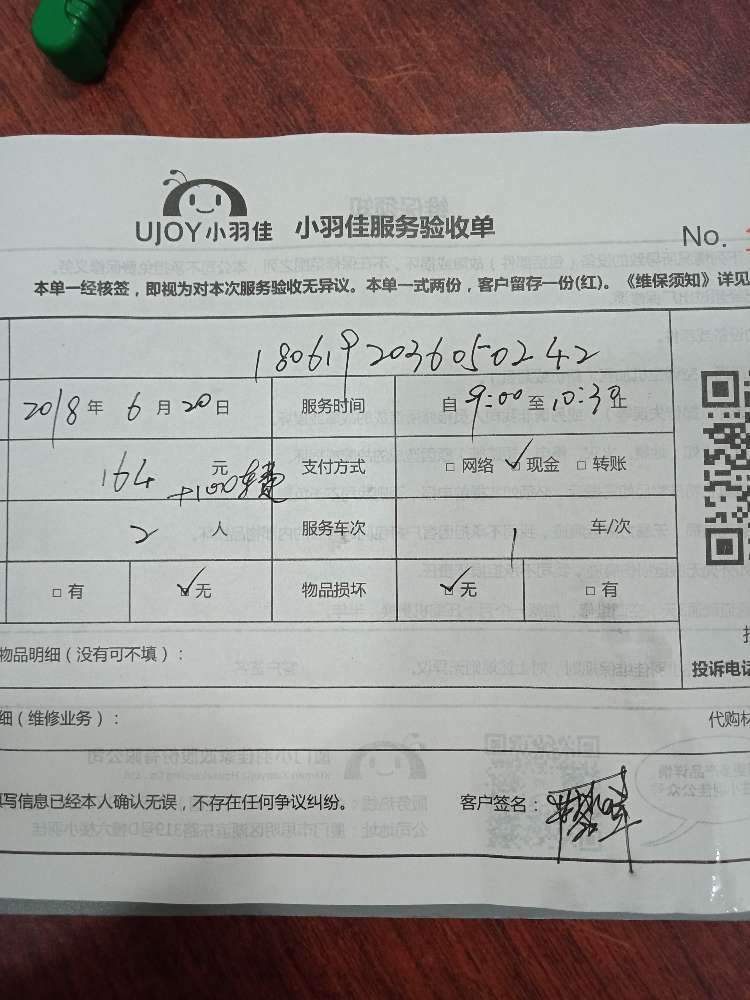 UJOY小羽佳 小羽佳服务验收单
No.
本单一经核签，即视为对本次服务验收无异议。本单一式两份，客户留存一份(红)。《维保须知》详见
1806192036050242
2018年6月20日 服务时间 自9:00至10:30止
164元 支付方式 □网络 ✓现金 □转账
+100车费
2人 服务车次 1车/次
□有 ✓无 物品损坏 ✓无 □有
物品明细（没有可不填）：
投诉电话
细（维修业务）： 代购材
填写信息已经本人确认无误，不存在任何争议纠纷。 客户签名：